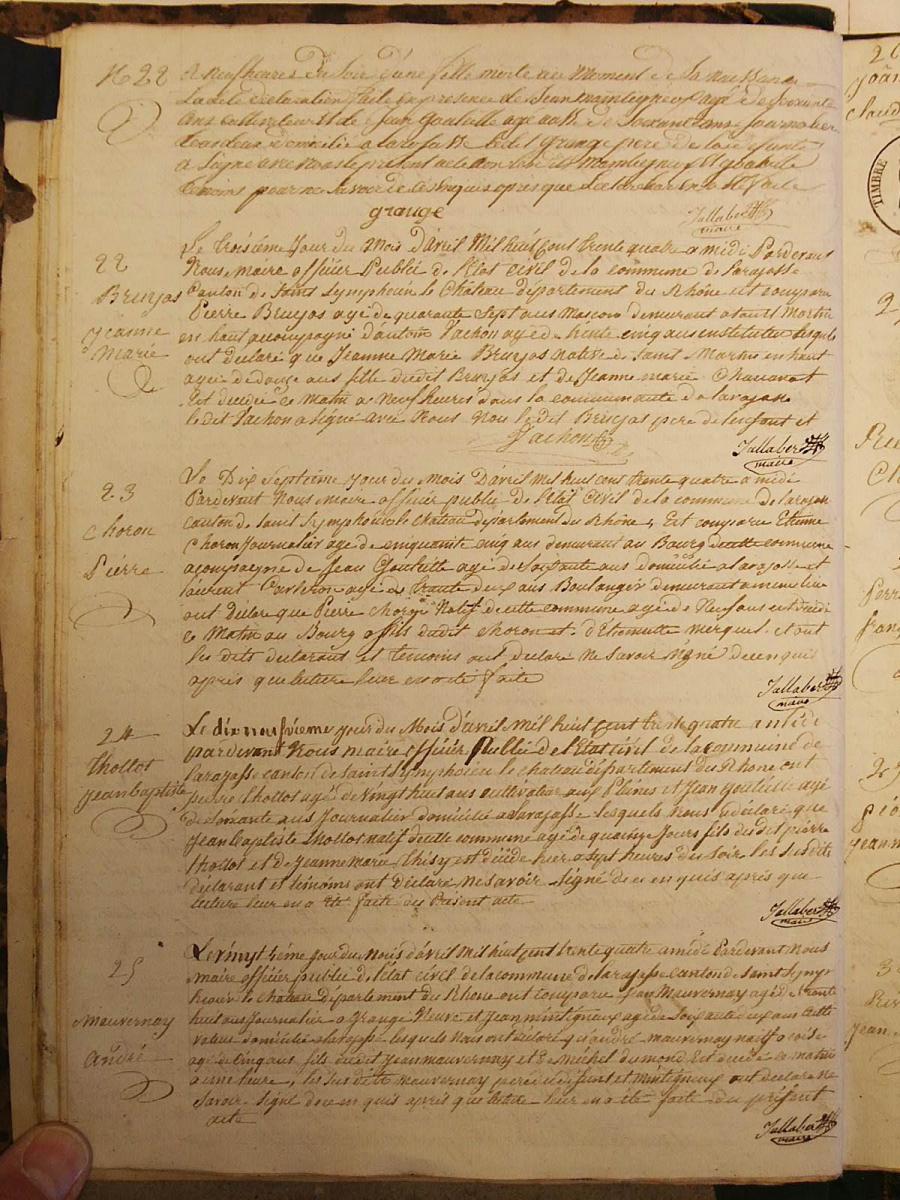 N 22 A neuf heures du Soir d'une fille morte au Moment de Sa naissance
La dite declaration faite en presence de Jean mainteigneux agé de Soixante
ans cultivateur et de Jean Gouteille agé aussi de Soixante ans journalier
tous deux domiciliés a larajasse Ledit Grange pere de la defunte
a Signé avec nous le présent acte non
témoins pour ne Savoir de ce enquis après que Lecture leur en a été faite
grange
Jallabert
maire
22
Brunjas
jeanne
Marie
Le troisième Jour du Mois D'avril Mil huit Cent trente quatre a midi Pardevant
Nous Maire officier Public de l'Etat civil de la commune de Larajasse
Canton de Saint Symphorien le Château département du Rhône est comparu
Pierre Brunjas agé de quarante Sept ans Macon demeurant a Saint Martin
en haut acompagné d'antoine Vachon agé de trente cinq ans instituteur lesquels
ont declaré que Jeanne Marie Brunjas native de Saint Martin en haut
agée de douze ans fille dudit Brunjas et de Jeanne marie Chavanot
Est décédée ce Matin a Neuf heures dans la communauté de larajasse
le dit Vachon a Signé avec Nous Non le dit Brunjas pere de l'enfant et
Vachon
Jallabert
maire
23
Choron
Pierre
Le Dix Septième jour du mois D'avril mil huit cent trente quatre a midi
Pardevant Nous Maire officier public de l'Etat Civil de la commune de larajasse
canton de Saint Symphorien le Chateau département du Rhône, Est comparu Etienne
Choron Journalier agé de cinquante cinq ans demeurant au Bourg de cette commune
acompagné de Jean Gouteille agé de Soixante ans domicilié a larajasse et
laurent agé de trente deux ans Boulanger demeurant a meme lieu
ont Déclaré que Pierre Natif de cette commune agé de Neuf ans est décédé
ce Matin au Bourg fils dudit Choron et d'Etiennette merguet. et ont
les dits declarant et temoins ont declaré Ne Savoir signé de ce enquis
après que lecture leur en a été faite
Jallabert
maire
24
thollot
jean baptiste
Le dix neuvième jour du Mois d'avril Mil huit cent trente quatre a midi
pardevant Nous maire officier Public de l'Etat Civil de la commune de
Larajasse canton de Saint Symphorien le chateau département du Rhône ont
pierre thollot agé de vingt huit ans cultivateur aux plaines et Jean Gouteille agé
de Soixante ans Journalier domicilié a larajasse lesquels Nous déclaré que
Jean Baptiste thollot natif de cette commune agé de quinze Jours fils dudit pierre
thollot et de Jeanne Marie thisy est décédé hier a sept heures du Soir les Susdits
déclarant et témoins ont déclaré Ne savoir Signé de ce enquis après que
lecture leur en a été faite du Présent acte
Jallabert
maire
25
Mauvernay
André
Le vingt 4ème jour du Mois d'avril Mil huit cent trente quatre a midi Pardevant Nous
maire officier public de l'état civil de la commune de larajasse Canton de Saint Symp
horien le chateau département du Rhône ont comparu Jean Mauvernay agé de trente
huit ans Journalier a Grange Neuve et Jean mintigneux agé de Soixante deux ans culti
vateur domicilié a larajasse lesquels Nous ont déclaré que andré mauvernay natif
agé de cinq ans fils dudit Jean mauvernay et de Michel dumond Est decedé ce matin
a une heure, les Susdits Mauvernay pere du defunt et Mintigneux ont déclaré Ne
savoir Signé de ce enquis après que lecture leur en a été faite du présent
acte
Jallabert
maire
TIMBRE